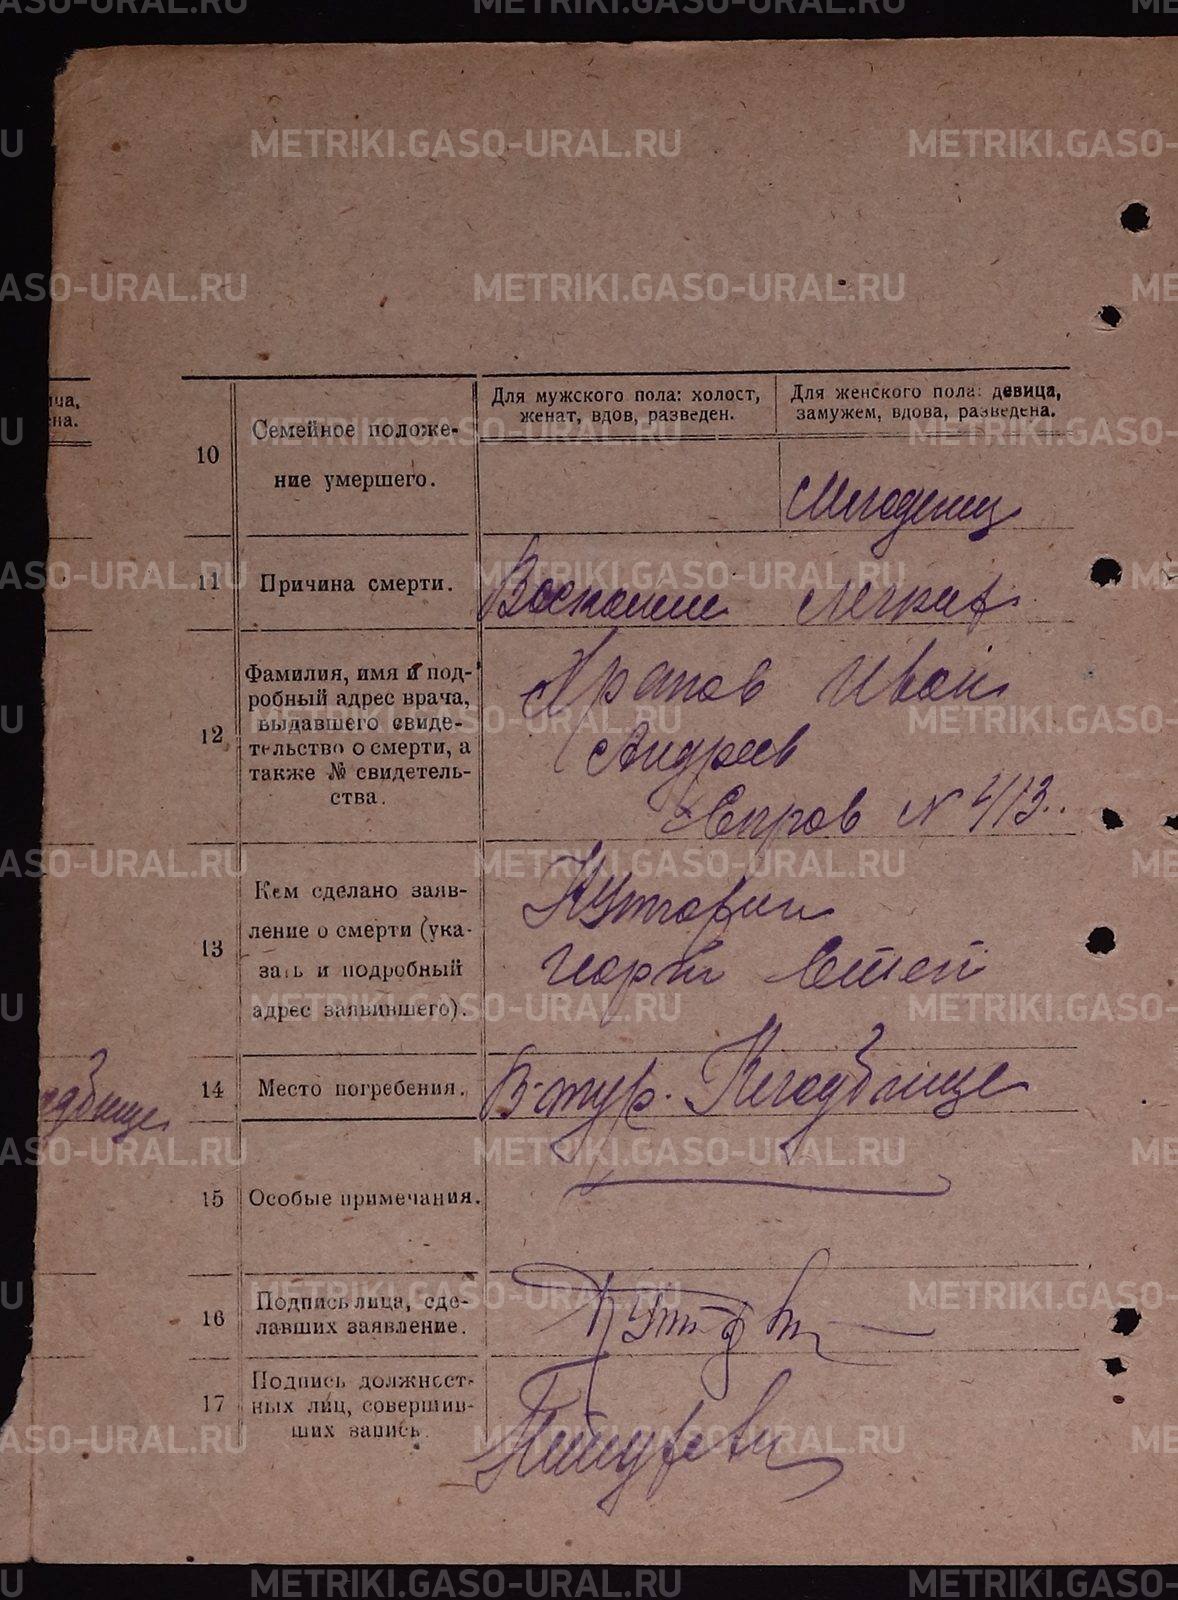 METRIKI.GASO-URAL.RU
Для мужского пола: холост, женат, вдов, разведен.
Для женского пола: девица, замужем, вдова, разведена.
10
Семейное положе-
ние умершего.
Младенец
11
Причина смерти.
Воспаление легких
12
Фамилия, имя и под-
робный адрес врача,
выдавшего свиде-
тельство о смерти, а
также № свидетель-
ства.
Иван
Андреев
Справ № 413
13
Кем сделано заяв-
ление о смерти (ука-
зать и подробный
адрес заявившего).
14
Место погребения.
В-тур. Кладбище
15
Особые примечания.
16
Подпись лица, сде-
лавших заявление.
17
Подпись должност-
ных лиц, совершив-
ших запись.